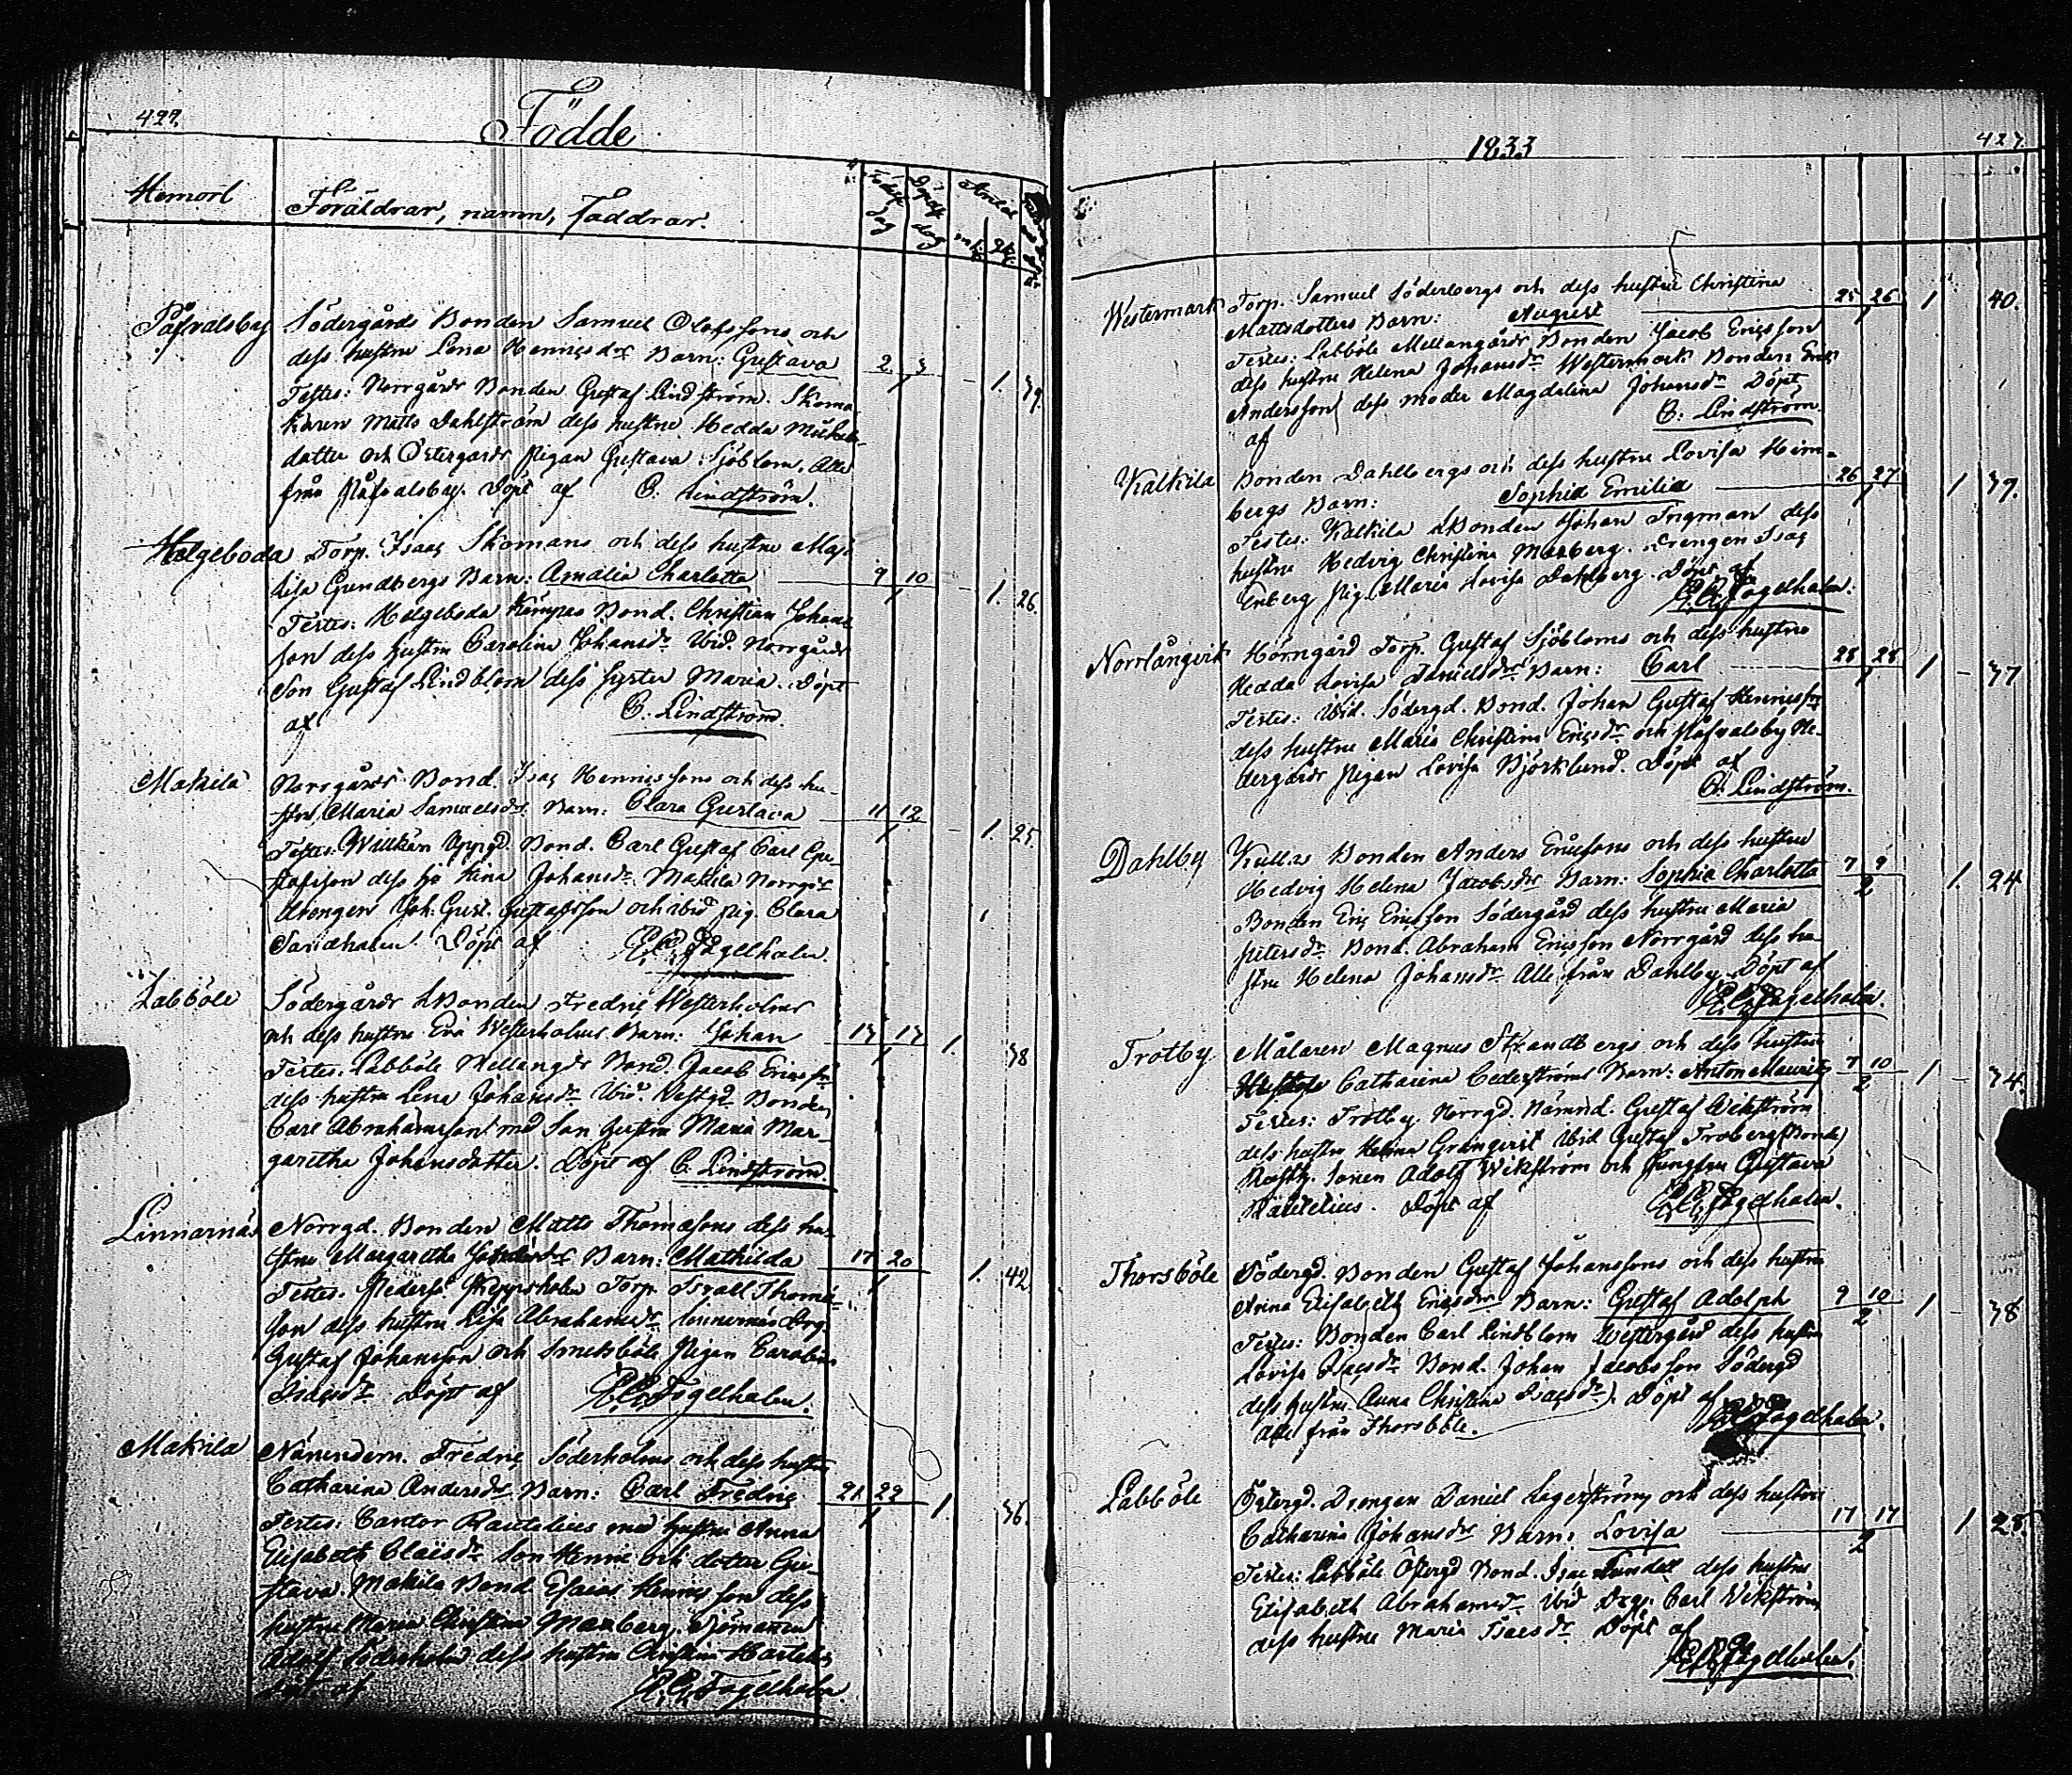 422.
Födde
Hemort
Föräldrar, namn, Faddrar.
Födelse dag
Döpelse dag
Antal
mk. qk.
Påfvalsby Södergårds Bonden Samuel Olofssons och
dess hustru Lena Henricsdrs Barn: Gustava 2 3 1 1. 39.
Testes: Norrgårds Bonden Gustaf Lindström. Skoma-
karen Matts Dahlström dess hustru Hedda Mickels-
dotter och Östergårds Pigan Gustava Sjöblom. Alla
från Påfvalsby. Döpt af C. Lindström.
Helgeboda Torp. Isaac Skomans och dess hustru Maja
Lisa Grundbergs Barn: Amalia Charlotta 9 10 1 1. 26.
Testes: Helgeboda Kämpas Bond. Christian Johans-
son dess hustru Carolina Johansdr Ibid. Norrgårds
Son Gustaf Lindblom dess syster Maria. Döpt
af C. Lindström.
Makila Norrgårds Bond. Isac Henricssons och dess hu-
stru Maria Samuelsdrs Barn: Clara Gustava 11 12 1 1. 25.
Testes: Uppgd. Bond. Carl Gustaf Carl Gu-
stafsson dess h. Stina Johansdr Makila Norrgds
drengen Joh: Gust. Gustafsson och ibid Pig. Clara
Sandholm. Döpt af Fagelholm.
Labböle Södergårds Bonden Fredric Westerholms
och dess hustru Eva Westerholms Barn: Johan 13 13 1 1. 38
Testes. Labböle Mellangds Bond. Jacob Ericsson
dess hustru Lena Johansdr Ibid. Vestgd Bonden
Carl Abrahamsson med Son hustru Maria Mar-
garetha Johansdotter. Döpt af C. Lindström.
Linnarnäs Norrgd. Bonden Matts Thomasons dess hu-
stru Margaretha Barn: Mathilda 17 20 1 1. 42
Testes. Torp. Israel Thoma-
son dess hustru Lisa Abrahamsdr Linnarnäs Drg.
Gustaf Johansson och Smedsböle Pigan Carolina
Isacsdr Döpt af Fagelholm.
Makila Fredric Söderholms och dess hustru
Catharina Andersdrs Barn: Carl Fredric 21 22 1 1. 36.
Testes: Cantor Rautelius med hustru Anna
Elisabeth Claësdr Son Henric och dotter Gu-
stava. Makila Bond Esaias Henricsson dess
hustru Maria Christina Maxberg. Sjömannen
Adolf Söderholm dess hustru Christina
Döpt af Fagelholm.
1833
423.
Westermark Torp. Samuel Söderbergs och dess hustru Christina
Mattsdotters Barn: August 25 26 1 1 40.
Testes: Labböle Mellangårds Bonden Jacob Ericsson
dess hustru Helena Johansdr Westermark Bonden Eric
Andersson dess moder Magdalena Johansdr Döpt
af C. Lindström.
Kalkila Bonden Dahlbergs och dess hustru Lovisa Heim-
bergs Barn: Sophia Emilia 26 27 1 1 39.
Testes: Kalkila Bonden Johan Ingman dess
hustru Hedvig Christina Maxberg. Drengen Isac
Enberg Pig. Maria Lovisa Dahlberg. Döpt af
Fagelholm.
Norrlångvik Horngård Torp. Gustaf Sjöbloms och dess hustru
Hedda Lovisa Danielsdrs Barn: Carl 28 28 1 1 – 37
Testes: Ibid. Södergd. Bond. Johan Gustaf Henricsson
dess hustru Maria Christina Ericsdr och Påfvalsby Ne-
dergårds Pigan Lovisa Björklund. Döpt af
C. Lindström.
Dahlby Kulla Bonden Anders Ericsons och dess hustru
Hedvig Helena Jacobsdrs Barn: Sophia Charlotta 7 9 2 1. 24
Bonden Eric Ericsson Södergård dess hustru Maria
Petersdr Bond. Abraham Ericsson Norrgård dess hu-
stru Helena Johansdr Alle från Dahlby. Döpt af
Fagelholm.
Trotby Målaren Magnus Strandbergs och dess hustru
Catharina Cederströms Barn: Anton Mauritz 7 10 2 1 – 34.
Testes: Trotby Norrgd. Nämnd. Gustaf Wikström
dess hustru Helena Granqvist Ibid Gustaf Troberg (Bonde)
Sonen Adolf Wikström och Jungfru Gustava
Rautelius. Döpt af Fagelholm.
Thorsböle Södergd. Bonden Gustaf Johanssons och dess hustru
Anna Elisabeth Ericsdrs Barn: Gustaf Adolph 9 10 2 1 – 38
Testes: Bonden Carl Lindblom Westergård dess hustru
Lovisa Isacsdr Bond. Johan Jacobsson Södergd
dess hustru Anna Christina Isacsdr. Döpt af
Alle från Thorsböle. Fagelholm.
Labböle Östergd. Drengen Daniel Lagerström och dess hustru
Catharina Johansdrs Barn: Lovisa 17 17 2 1 28
Testes: Labböle Östergd Bond. Isac Lundell dess hustru
Elisabeth Abrahamsdr Ibid Drg. Carl Wikström
dess hustru Maria Isacsdr Döpt af
Fagelholm.